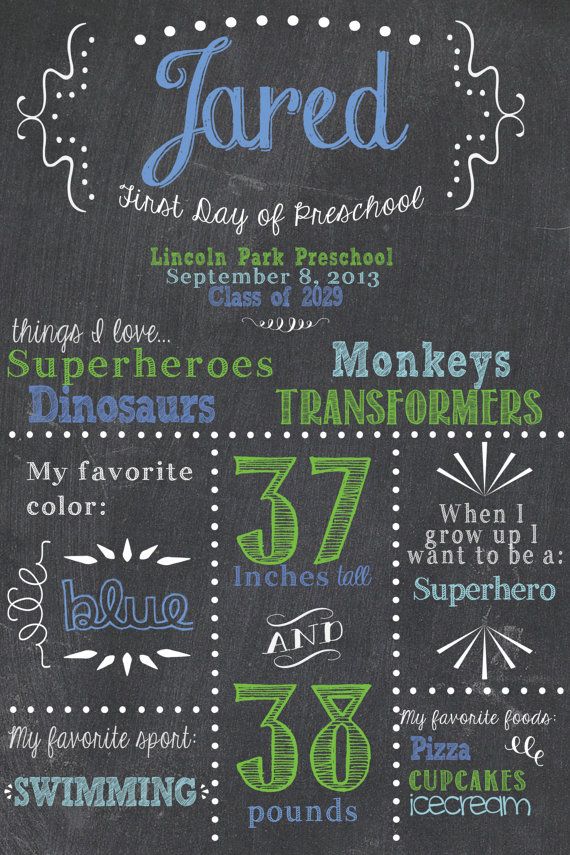 Jared
First Day of Preschool
Lincoln Park Preschool
September 8, 2013
Class of 2029
things I love...
Superheroes
Dinosaurs
Monkeys
TRANSFORMERS
My favorite
color:
blue
37
Inches tall
AND
38
pounds
When I
grow up I
want to be a:
Superhero
My favorite sport:
SWIMMING
My favorite foods:
Pizza
CUPCAKES
icecream